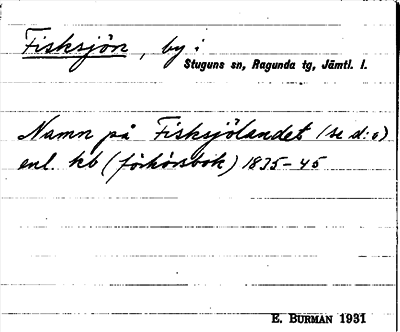 Fisksjön, by i
Stuguns sn, Ragunda tg, Jämtl. l.
Namn på Fisksjölandet (se d:o)
enl. kb (förhörsbok) 1835-45
E. BURMAN 1931